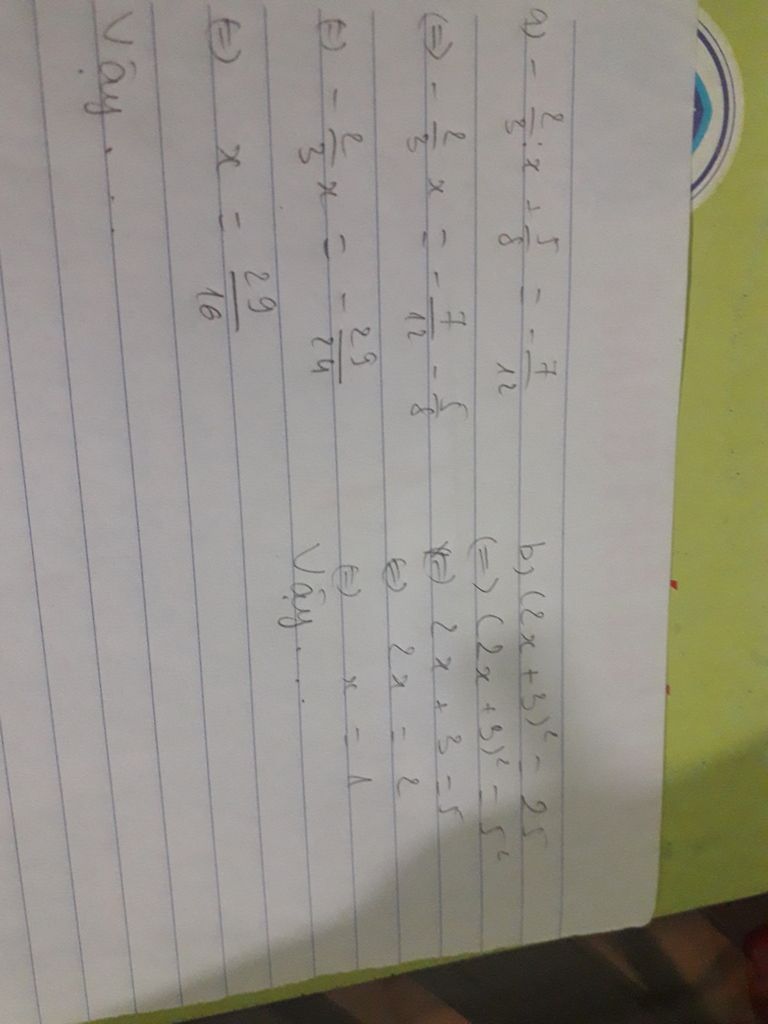 a) - 2/3 . x + 5/8 = - 7/12
(=) - 2/3 x = - 7/12 - 5/8
(=) - 2/3 x = - 29/24
(=) x = 29/16
Vậy . . .
b) (2x + 3)² = 25
(=) (2x + 3)² = 5²
(=) 2x + 3 = 5
(=) 2x = 2
(=) x = 1
Vậy . . .